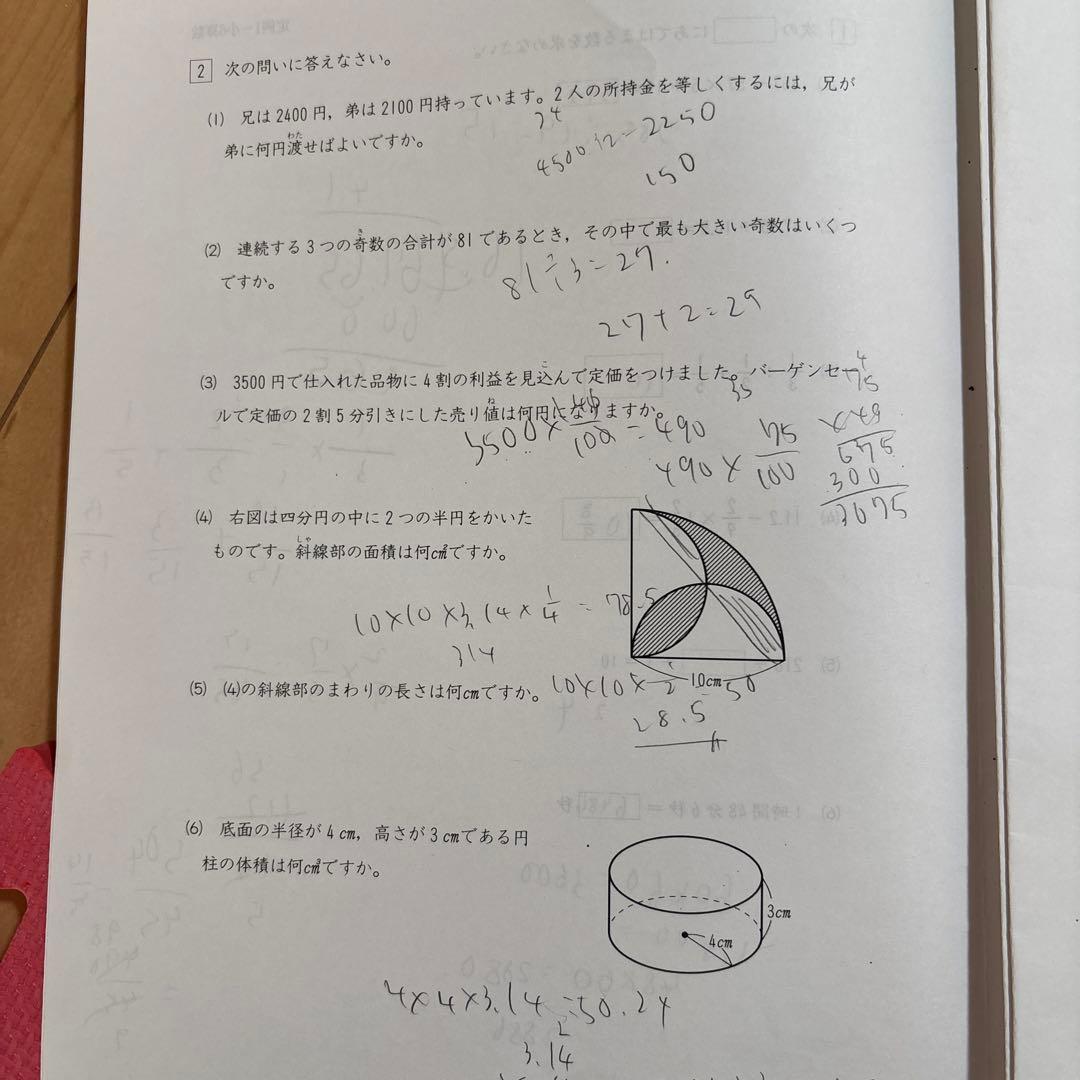 2 次の問いに答えなさい。
(1) 兄は2400円，弟は2100円持っています。2人の所持金を等しくするには，兄が
弟に何円渡せばよいですか。
わた
4500÷2=2250
150
(2) 連続する3つの奇数の合計が81であるとき，その中で最も大きい奇数はいくつ
き
ですか。
81÷3=27.
27+2=29
(3) 3500円で仕入れた品物に4割の利益を見込んで定価をつけました。バーゲンセー
こ
ルで定価の2割5分引きにした売り値は何円になりますか。
ね
=490
490×75/100
675
300
3675
(4) 右図は四分円の中に2つの半円をかいた
ものです。斜線部の面積は何cm²ですか。
しゃ
10×10×3.14×1/4=78.5
314
10cm
(5) (4)の斜線部のまわりの長さは何cmですか。
28.5
(6) 底面の半径が4cm，高さが3cmである円
柱の体積は何cm³ですか。
3cm
4cm
4×4×3.14=50.24
3.14